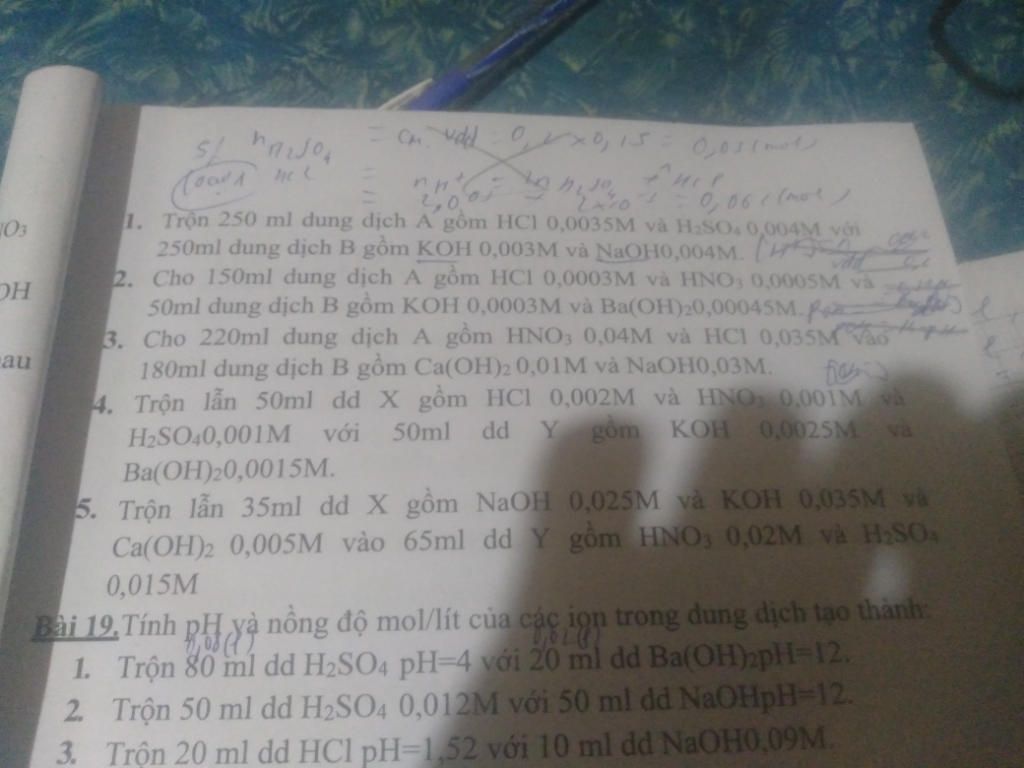 5/ nH₂SO₄ = CM. Vdd = 0,2 × 0,15 = 0,03 (mol)
HCl =
1. Trộn 250 ml dung dịch A gồm HCl 0,0035M và H₂SO₄ 0,004M với
250ml dung dịch B gồm KOH 0,003M và NaOH0,004M.
2. Cho 150ml dung dịch A gồm HCl 0,0003M và HNO₃ 0,0005M và
50ml dung dịch B gồm KOH 0,0003M và Ba(OH)₂0,00045M.
NO₃
OH
3. Cho 220ml dung dịch A gồm HNO₃ 0,04M và HCl 0,035M vào
180ml dung dịch B gồm Ca(OH)₂ 0,01M và NaOH0,03M.
au
4. Trộn lẫn 50ml dd X gồm HCl 0,002M và HNO₃ 0,001M và
H₂SO₄0,001M với 50ml dd Y gồm KOH 0,0025M và
Ba(OH)₂0,0015M.
5. Trộn lẫn 35ml dd X gồm NaOH 0,025M và KOH 0,035M và
Ca(OH)₂ 0,005M vào 65ml dd Y gồm HNO₃ 0,02M và H₂SO₄
0,015M
Bài 19.Tính pH và nồng độ mol/lít của các ion trong dung dịch tạo thành:
0,08(l) 0,02(l)
1. Trộn 80 ml dd H₂SO₄ pH=4 với 20 ml dd Ba(OH)₂pH=12.
2. Trộn 50 ml dd H₂SO₄ 0,012M với 50 ml dd NaOHpH=12.
3. Trộn 20 ml dd HCl pH=1,52 với 10 ml dd NaOH0,09M.